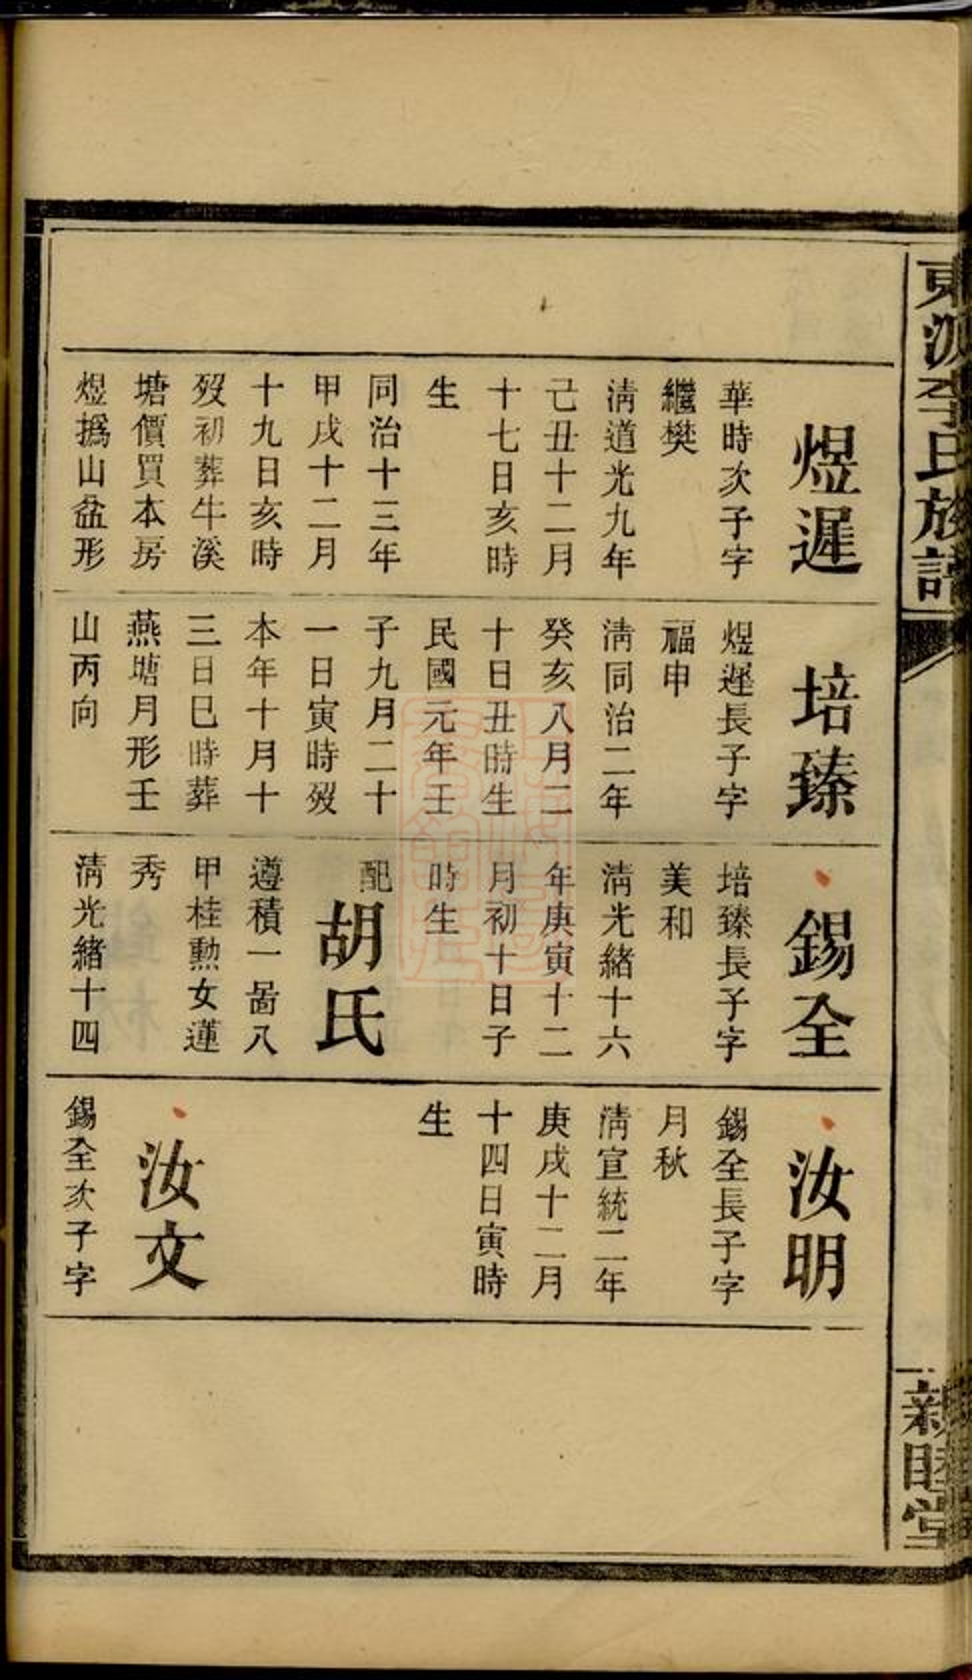 東派李氏族譜
親睦堂
煜遲
華時次子字
繼樊
淸道光九年
己丑十二月
十七日亥時
生
同治十三年
甲戌十二月
十九日亥時
歿初葬牛溪
塘價買本房
煜撝山盆形
培臻
煜遲長子字
福申
淸同治二年
癸亥八月二
十日丑時生
民國元年壬
子九月二十
一日寅時歿
本年十月十
三日巳時葬
燕塘月形壬
山丙向
錫全
培臻長子字
美和
淸光緒十六
年庚寅十二
月初十日子
時生
配
胡氏
遵積一啚八
甲桂勲女蓮
秀
淸光緒十四
汝明
錫全長子字
月秋
淸宣統二年
庚戌十二月
十四日寅時
生
汝文
錫全次子字